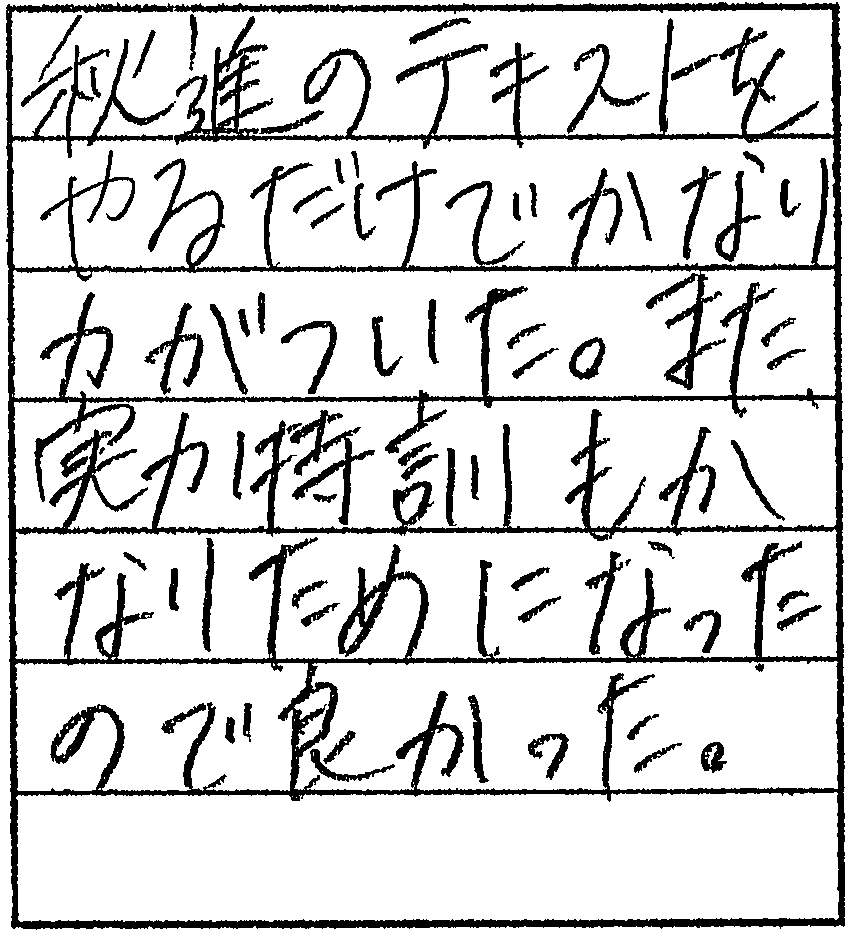 秋進のテキストを
やるだけでかなり
力がついた。また、
実力特訓もか
なりためになった
ので良かった。